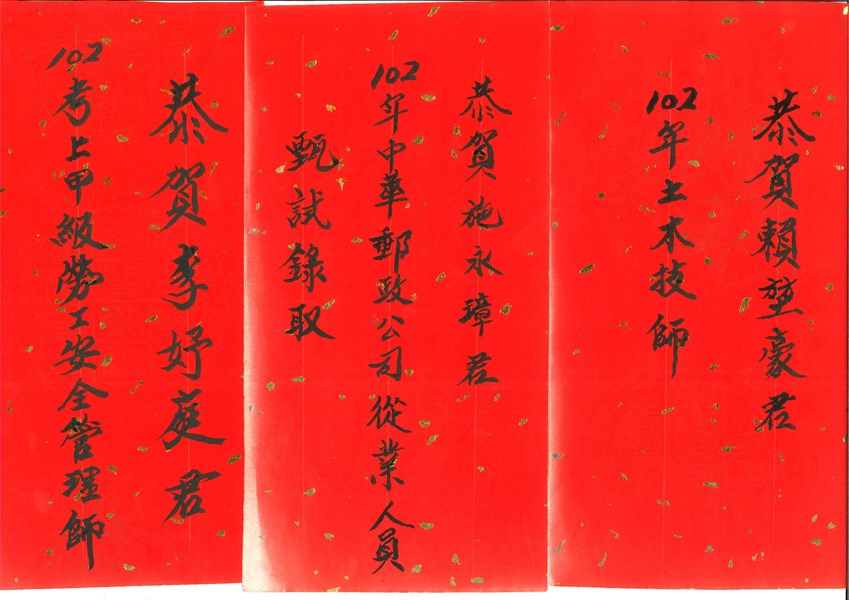 恭賀賴堃豪君
102年土木技師
恭賀施永璋君
102年中華郵政公司從業人員
甄試錄取
恭賀李妤庭君
102考上甲級勞工安全管理師